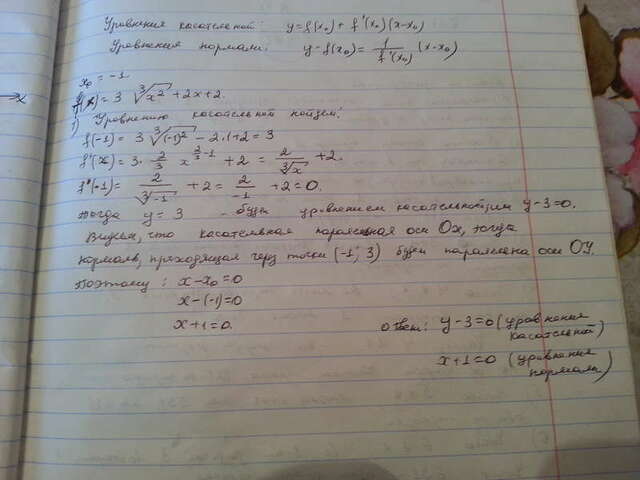 Уровнения касательной: y=f(x₀)+f'(x₀)(x-x₀)
Уровнения нормали: y-f(x₀)=1/f'(x₀) (x-x₀)
x₀=-1
→x
f(x)=3 ∛x² +2x+2.
1) Уровнению касательной найдем:
f(-1)=3 ∛(-1)² -2·1+2=3
f'(x)=3·2/3 x^(2/3-1) +2=2/∛x +2.
f'(-1)=2/∛-1 +2=2/-1 +2=0.
Тогда y=3 - будет уровнением касательной, или y-3=0.
Видим, что касательная паралельная оси Ox, тогда
нормаль, проходящая через точки (-1; 3) будет паралельна оси OY.
Поэтому: x-x₀=0
x-(-1)=0
x+1=0.
Ответ: y-3=0 (уровнения касательной)
x+1=0 (уровнения нормали)